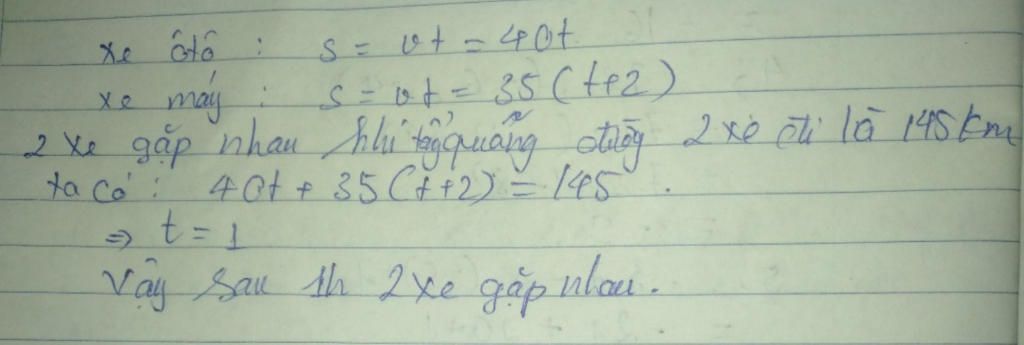 xe ôtô : s = vt = 40t
xe máy : s = vt = 35(t+2)
2 xe gặp nhau khi tổng quãng đường 2 xe đi là 145km
ta có : 40t + 35(t+2) = 145 .
⇒ t = 1
Vậy sau 1h 2 xe gặp nhau.